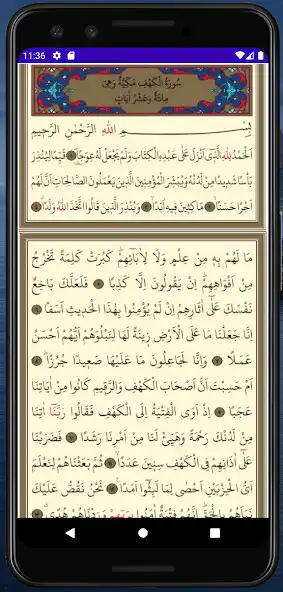 11:36
سُورَةُ الْكَهْفِ مَكِّيَّةٌ وَهِيَ
مِائَةٌ وَعَشْرُ اٰيَاتٍ
بِسْــــــمِ اللّٰهِ الرَّحْمٰنِ الرَّحِيمِ
اَلْحَمْدُ لِلّٰهِ الَّذٖٓى اَنْزَلَ عَلٰى عَبْدِهِ الْكِتَابَ وَلَمْ يَجْعَلْ لَهُ عِوَجًا ۞ قَيِّمًا لِيُنْذِرَ
بَاْسًا شَدٖيدًا مِنْ لَدُنْهُ وَيُبَشِّرَ الْمُؤْمِنٖينَ الَّذٖينَ يَعْمَلُونَ الصَّالِحَاتِ اَنَّ لَهُمْ
اَجْرًا حَسَنًا ۞ مَاكِثٖينَ فٖيهِ اَبَدًا ۞ وَيُنْذِرَ الَّذٖينَ قَالُوا اتَّخَذَ اللّٰهُ وَلَدًا ۞
مَا لَهُمْ بِهٖ مِنْ عِلْمٍ وَلَا لِاٰبَٓائِهِمْ كَبُرَتْ كَلِمَةً تَخْرُجُ
مِنْ اَفْوَاهِهِمْ اِنْ يَقُولُونَ اِلَّا كَذِبًا ۞ فَلَعَلَّكَ بَاخِعٌ
نَفْسَكَ عَلٰٓى اٰثَارِهِمْ اِنْ لَمْ يُؤْمِنُوا بِهٰذَا الْحَدٖيثِ اَسَفًا ۞
اِنَّا جَعَلْنَا مَا عَلَى الْاَرْضِ زٖينَةً لَهَا لِنَبْلُوَهُمْ اَيُّهُمْ اَحْسَنُ
عَمَلًا ۞ وَاِنَّا لَجَاعِلُونَ مَا عَلَيْهَا صَعٖيدًا جُرُزًا ۞
اَمْ حَسِبْتَ اَنَّ اَصْحَابَ الْكَهْفِ وَالرَّقٖيمِ كَانُوا مِنْ اٰيَاتِنَا
عَجَبًا ۞ اِذْ اَوَى الْفِتْيَةُ اِلَى الْكَهْفِ فَقَالُوا رَبَّنَٓا اٰتِنَا
مِنْ لَدُنْكَ رَحْمَةً وَهَيِّئْ لَنَا مِنْ اَمْرِنَا رَشَدًا ۞ فَضَرَبْنَا
عَلٰٓى اٰذَانِهِمْ فِى الْكَهْفِ سِنٖينَ عَدَدًا ۞ ثُمَّ بَعَثْنَاهُمْ لِنَعْلَمَ
اَىُّ الْحِزْبَيْنِ اَحْصٰى لِمَا لَبِثُٓوا اَمَدًا ۞ نَحْنُ نَقُصُّ عَلَيْكَ
نَبَاَهُمْ بِالْحَقِّ اِنَّهُمْ فِتْيَةٌ اٰمَنُوا بِرَبِّهِمْ وَزِدْنَاهُمْ هُدًى ۞